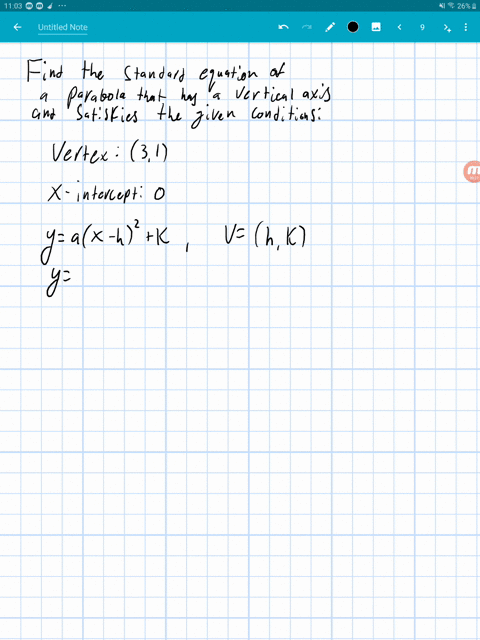 11:03
26%
Untitled Note
9
Find the standard equation of
a parabola that has a vertical axis
and satisfies the given conditions:
Vertex: (3,1)
X-intercept: 0
y=a(x-h)²+K, V=(h,K)
y=